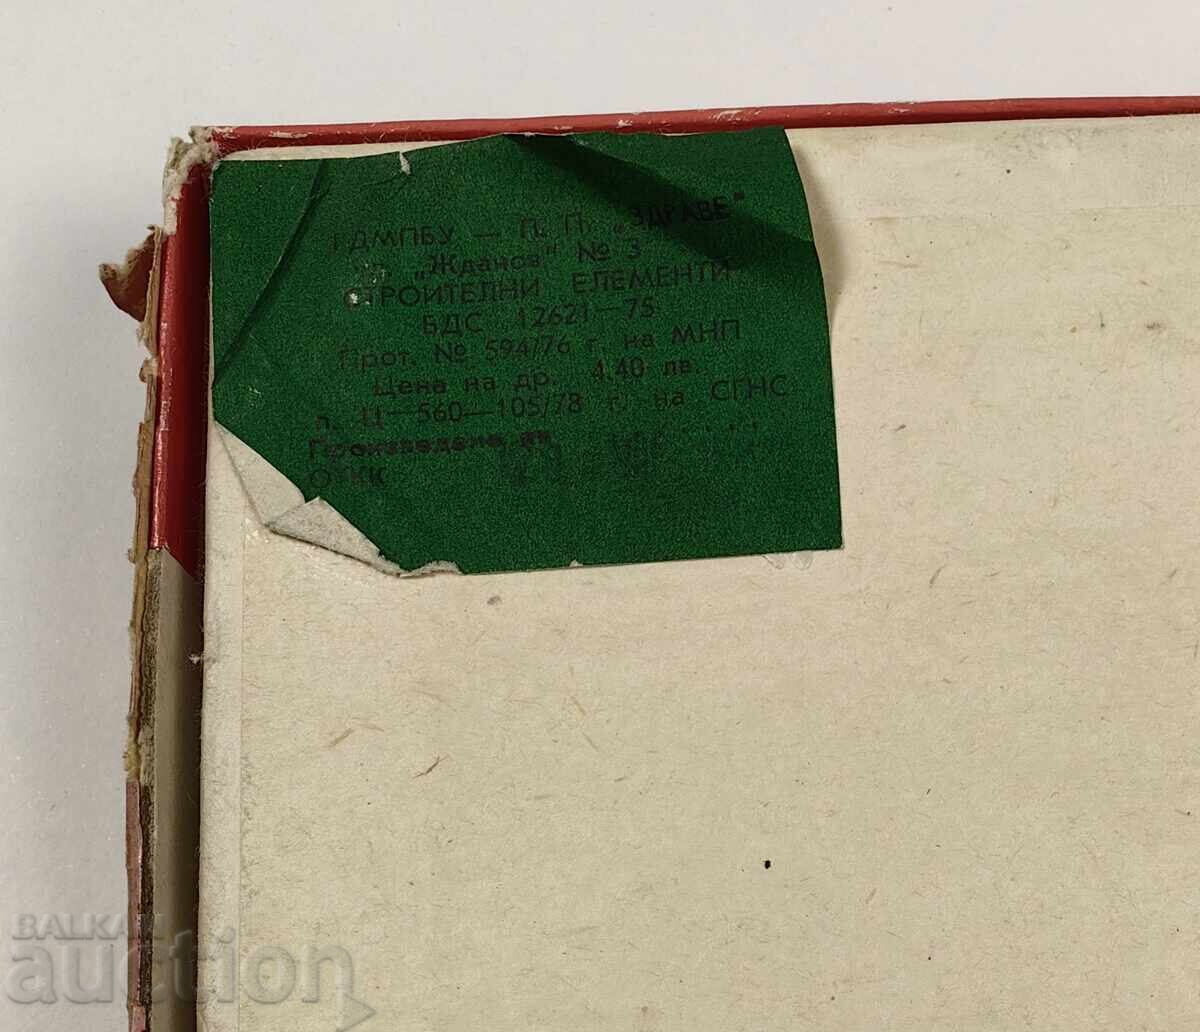 ГДМПБУ — П. П. „ЗДРАВЕ"
„Жданов" № 3
СТРОИТЕЛНИ ЕЛЕМЕНТИ
БДС 12621—75
Прот. № 594/76 г. на МНП
Цена на др. 4.40 лв.
п. Ц—560—105/78 г. на СГНС
Произведено
ОТКК
BALKAN
auction